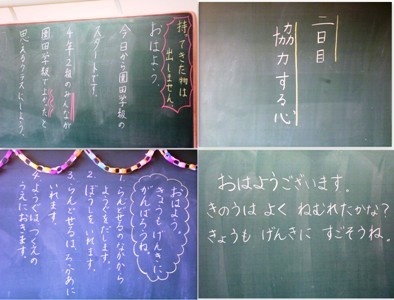 持ってきた物は
出しません。
おはよう。
今日から園田学級の
スタートです。
4年2組のみんなが
園田学級でよかったと
思えるクラスにしよう。
二日目
協力する心
おはよう。
きょうも げんきに
がんばろうね。
1.らんどせるのなかから
ようぐをだします。
2.ぼうしをいれます。
3.らんどせるは、ろっかあに
いれます。
4.ようぐは、つくえの
うえにおきます。
おはようございます。
きのうは よく ねむれたかな？
きょうも げんきに すごそうね。